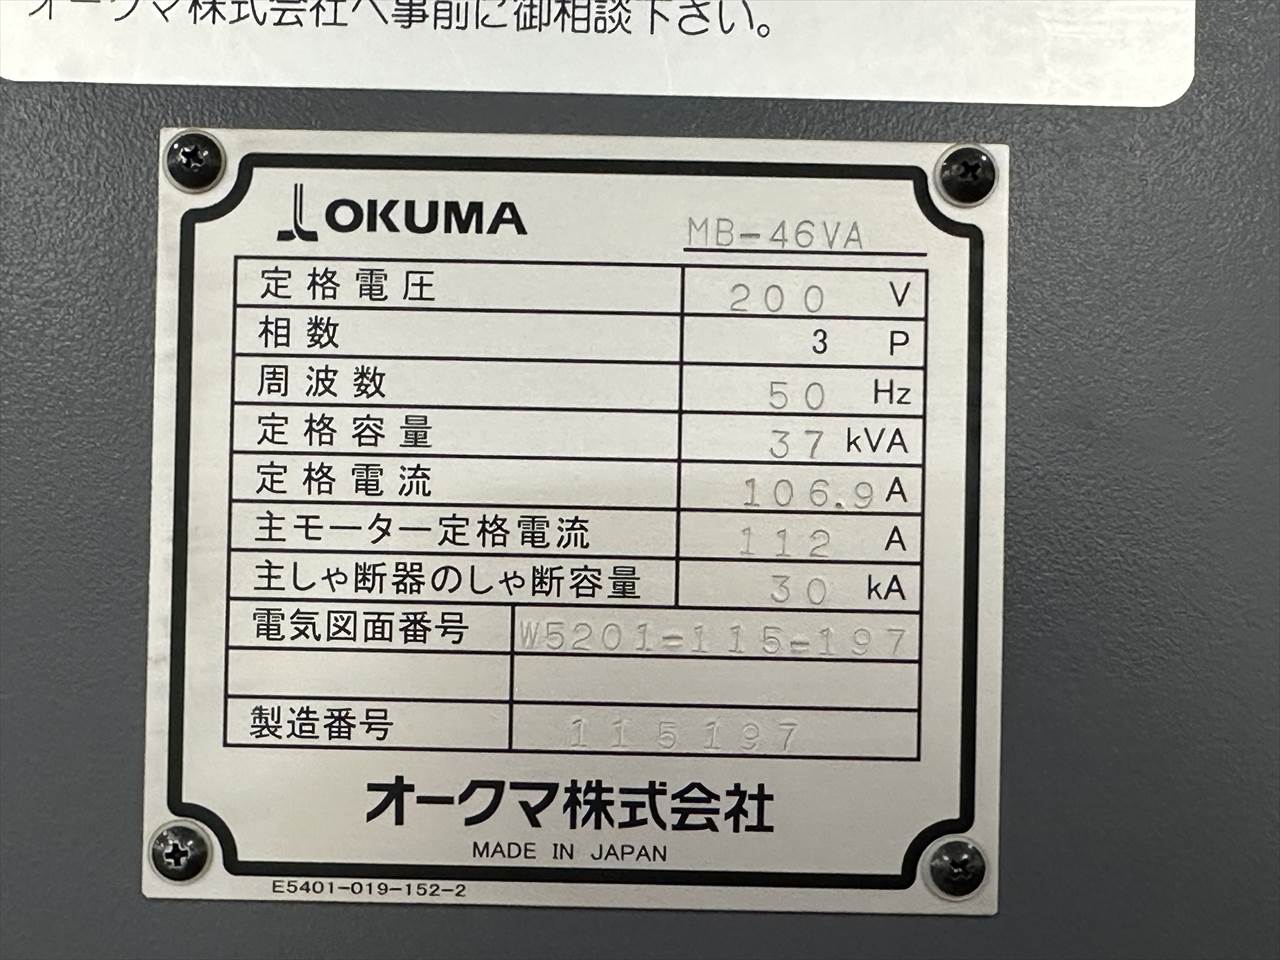 オークマ株式会社へ事前に御相談下さい。
OKUMA MB-46VA
定格電圧 200 V
相数 3 P
周波数 50 Hz
定格容量 37 kVA
定格電流 106.9 A
主モーター定格電流 112 A
主しゃ断器のしゃ断容量 30 kA
電気図面番号 W5201-115-197
製造番号 115197
オークマ株式会社
MADE IN JAPAN
E5401-019-152-2